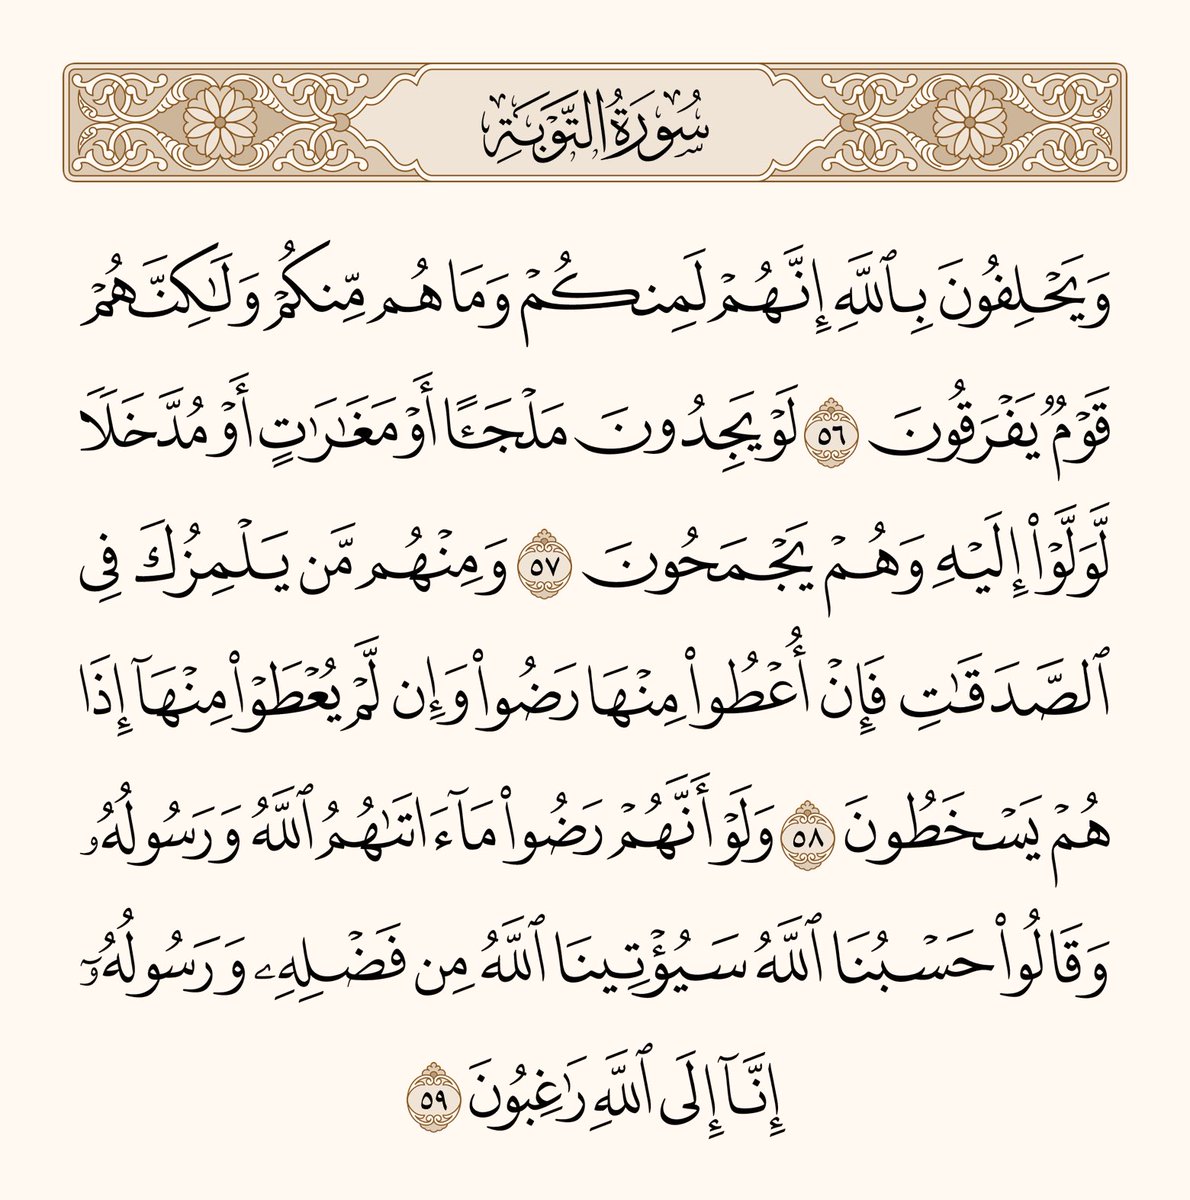 سُورَةُ التَّوۡبَةِ
وَيَحۡلِفُونَ بِٱللَّهِ إِنَّهُمۡ لَمِنكُمۡ وَمَا هُم مِّنكُمۡ وَلَٰكِنَّهُمۡ
قَوۡمٞ يَفۡرَقُونَ ٥٦ لَوۡ يَجِدُونَ مَلۡجَـًٔا أَوۡ مَغَٰرَٰتٍ أَوۡ مُدَّخَلٗا
لَّوَلَّوۡاْ إِلَيۡهِ وَهُمۡ يَجۡمَحُونَ ٥٧ وَمِنۡهُم مَّن يَلۡمِزُكَ فِي
ٱلصَّدَقَٰتِ فَإِنۡ أُعۡطُواْ مِنۡهَا رَضُواْ وَإِن لَّمۡ يُعۡطَوۡاْ مِنۡهَآ إِذَا
هُمۡ يَسۡخَطُونَ ٥٨ وَلَوۡ أَنَّهُمۡ رَضُواْ مَآ ءَاتَىٰهُمُ ٱللَّهُ وَرَسُولُهُۥ
وَقَالُواْ حَسۡبُنَا ٱللَّهُ سَيُؤۡتِينَا ٱللَّهُ مِن فَضۡلِهِۦ وَرَسُولُهُۥٓ
إِنَّآ إِلَى ٱللَّهِ رَٰغِبُونَ ٥٩